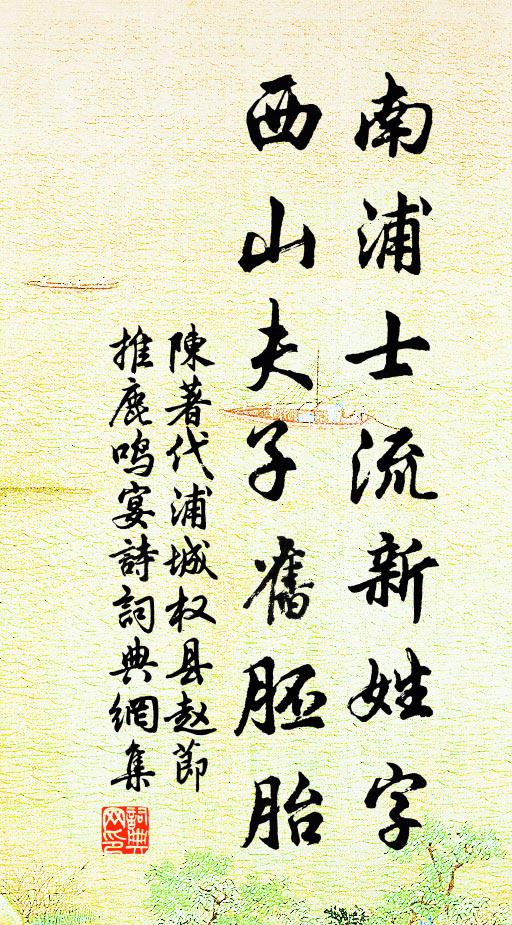 南浦士流新姓字
西山夫子舊胚胎
陳著代浦城权县赵節
推鹿鸣宴詩詞典網集
詞典
网印